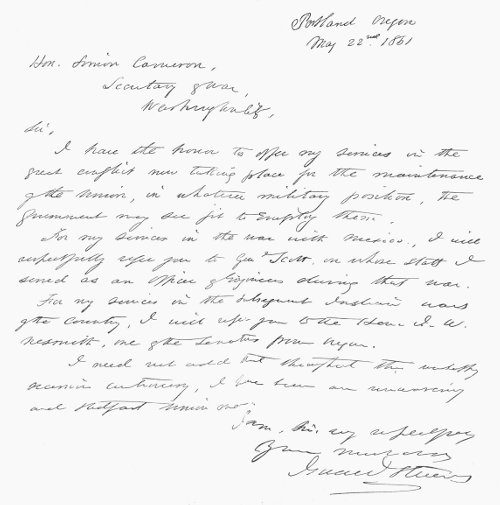 Portland Oregon
May 22nd 1861
Hon. Simon Cameron,
Secretary of War,
Washington City,
Sir,
I have the honor to offer my services in the
great conflict now taking place for the maintenance
of the Union, in whatever military position, the
Government may see fit to Employ them.
For my services in the war with Mexico, I will
respectfully refer you to Genl Scott, on whose staff I
served as an officer of Engineers during that war.
For my services in the subsequent Indian wars
of the Country, I will refer you to the Hon. J. W.
Nesmith, one of the Senators from Oregon.
I need not add that throughout the
secession controversy, I have been an unwavering
and steadfast Union man
I am, Sir, very respectfully
Your
Isaac I Stevens